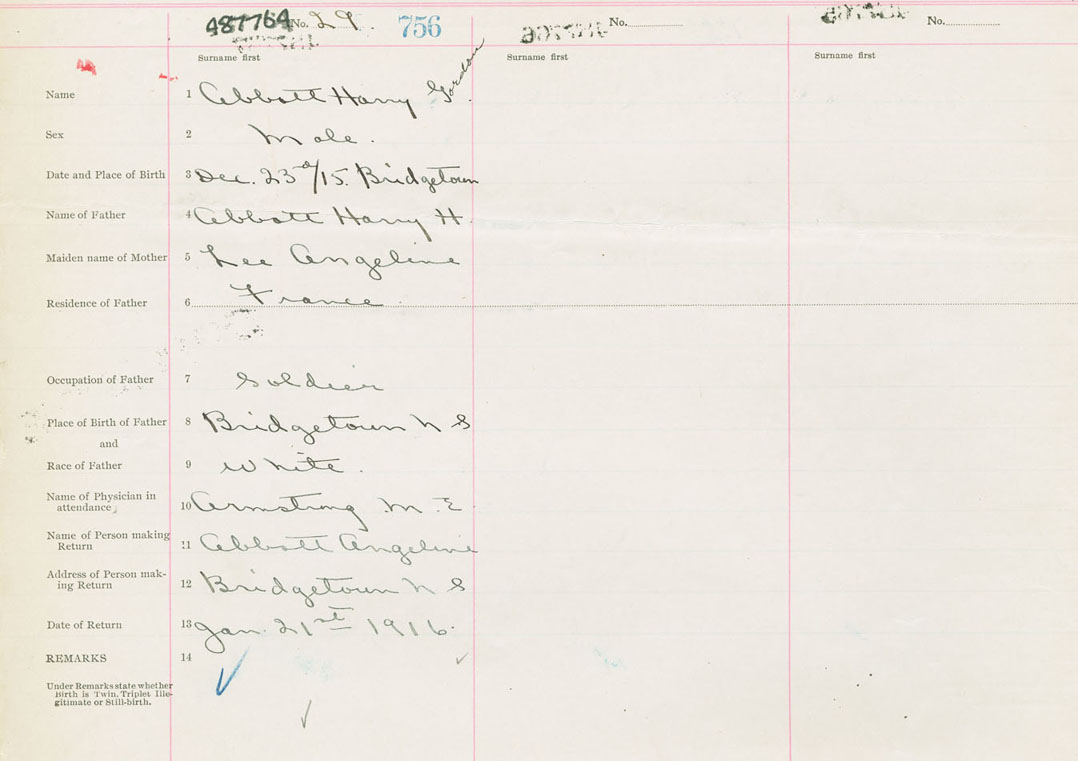 487764 No. 29. 756 No. No.
Surname first Surname first Surname first
Name 1 Abbott Harry Gordon
Sex 2 Male.
Date and Place of Birth 3 Dec. 23d/15. Bridgetown
Name of Father 4 Abbott Harry H.
Maiden name of Mother 5 Lee Angeline
Residence of Father 6 France
Occupation of Father 7 Soldier
Place of Birth of Father 8 Bridgetown N S
and
Race of Father 9 White.
Name of Physician in
attendance 10 Armstrong M. E
Name of Person making
Return 11 Abbott Angeline
Address of Person mak-
ing Return 12 Bridgetown N S
Date of Return 13 Jan. 21st 1916.
REMARKS 14
Under Remarks state whether
Birth is Twin, Triplet Ille-
gitimate or Still-birth.